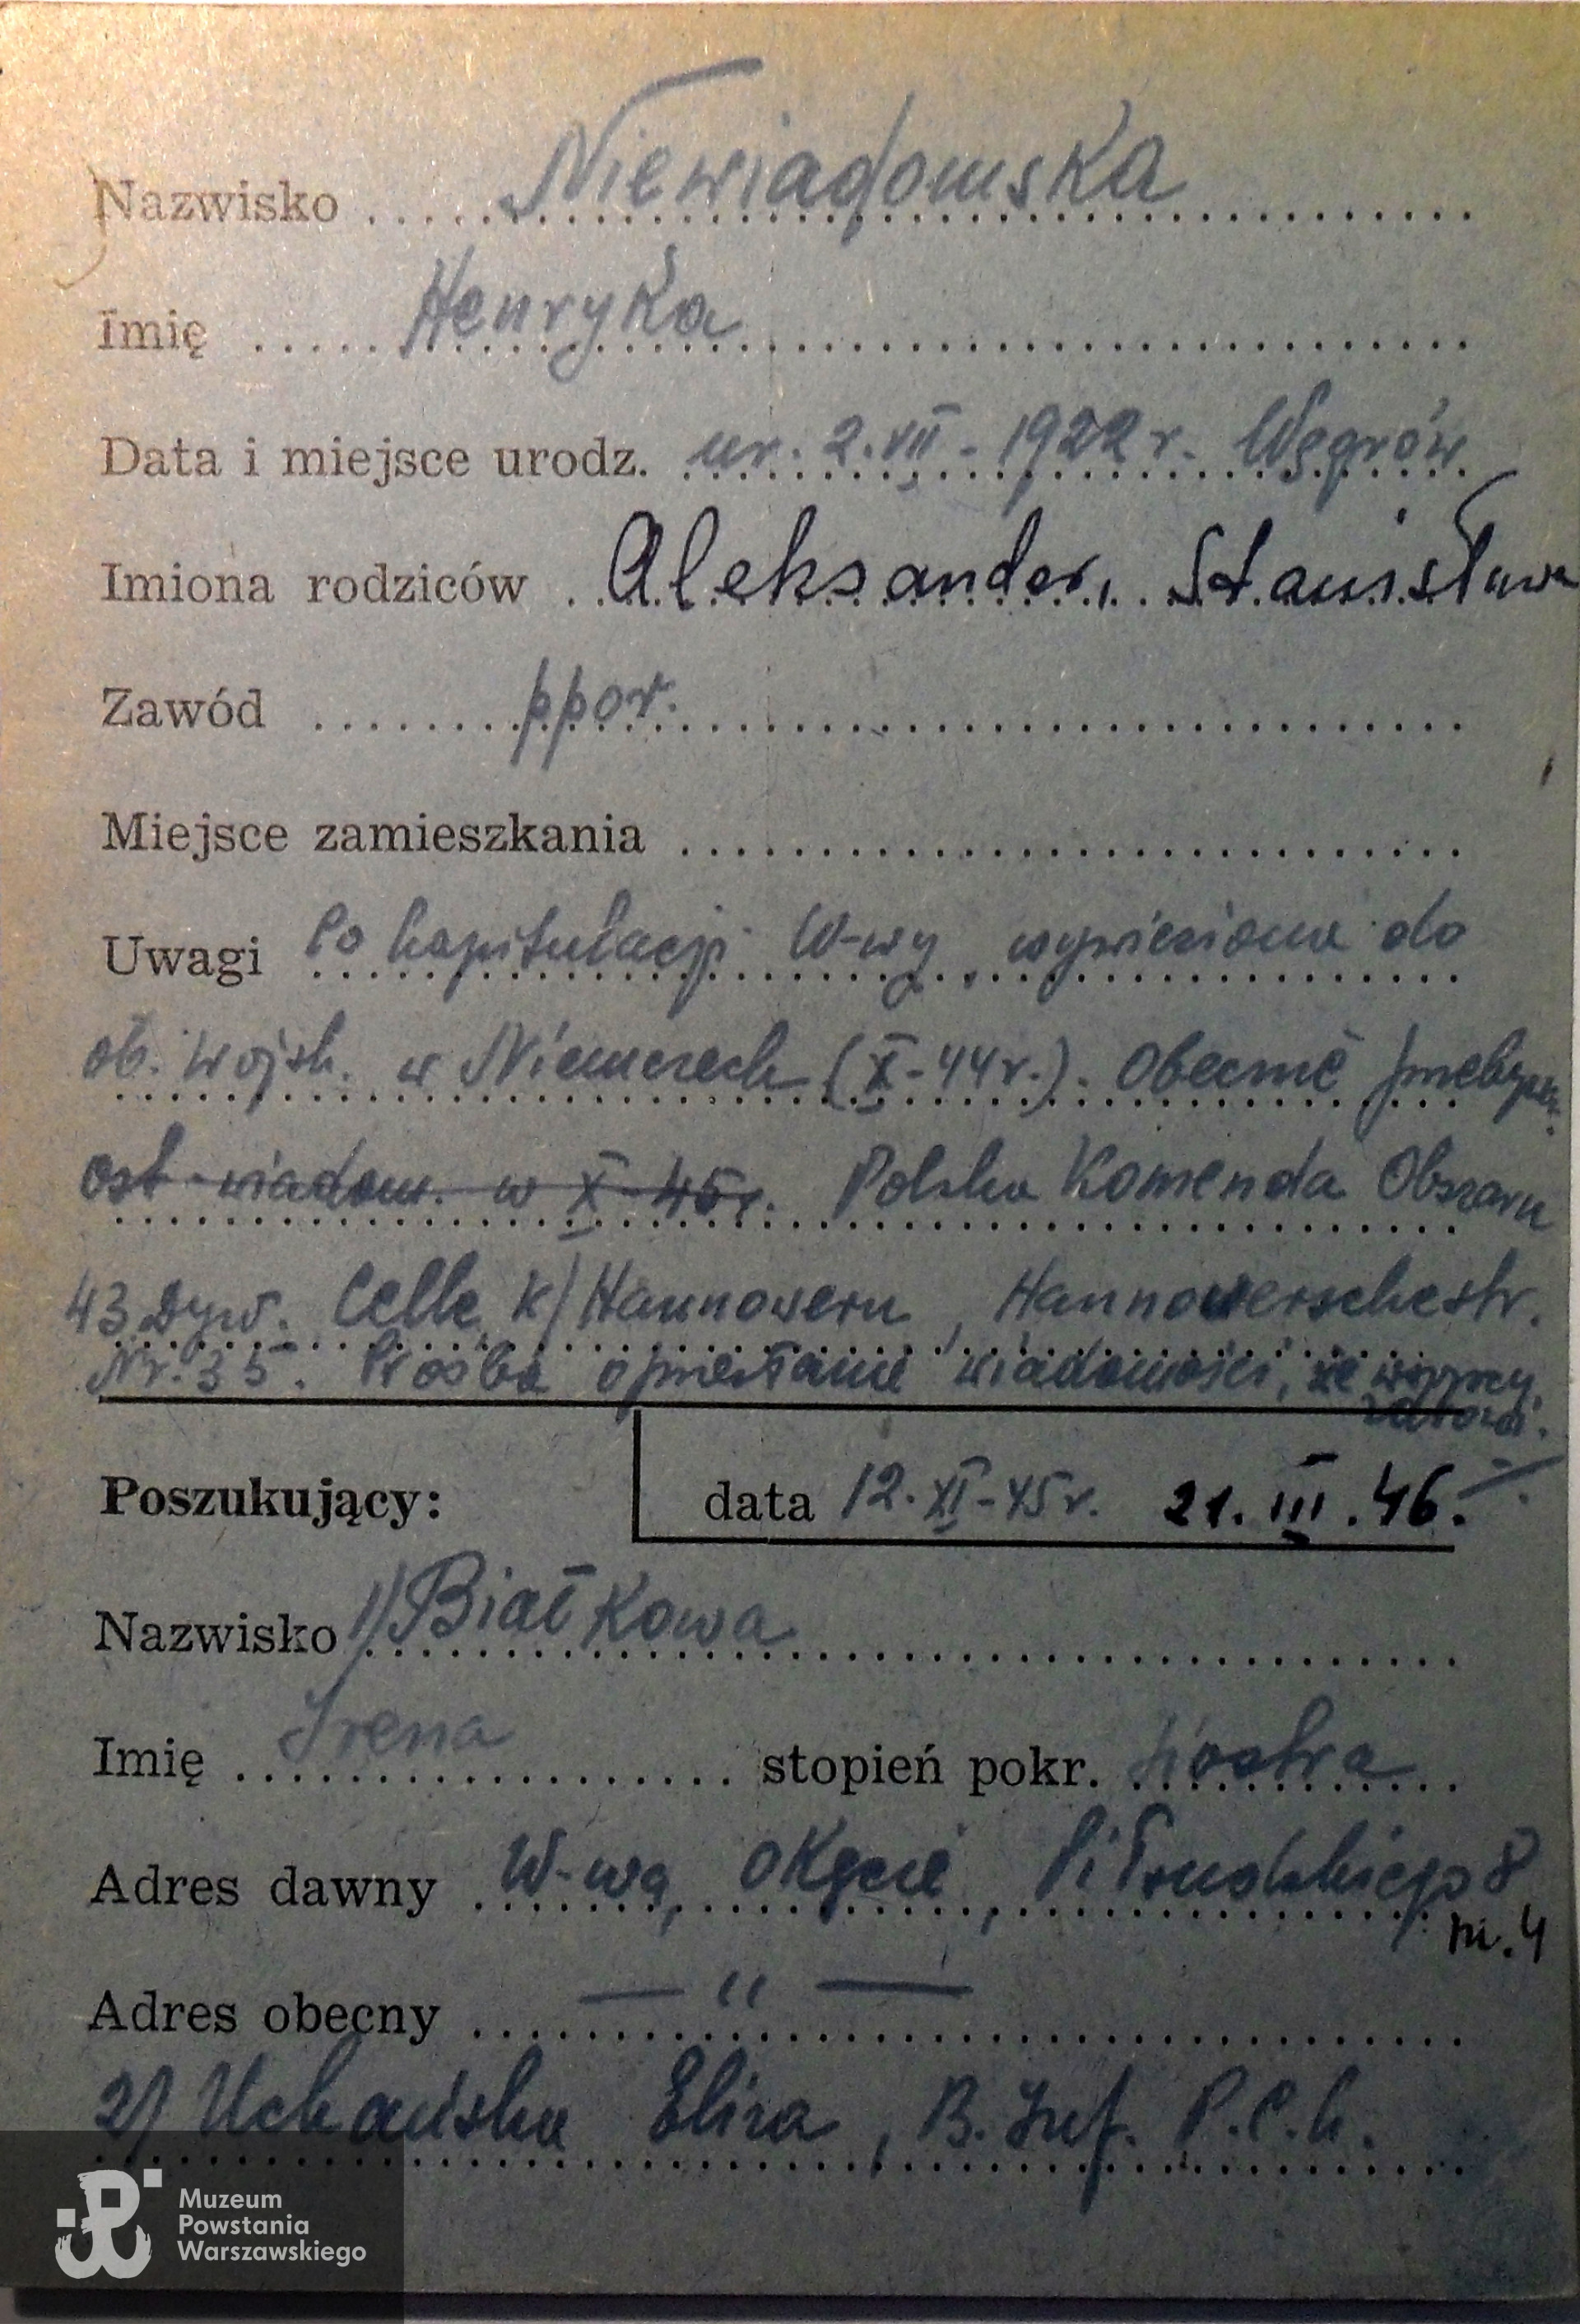 Nazwisko Niewiadomska
Imię Henryka
Data i miejsce urodz. ur. 2.VII-1922 r. Węgrów
Imiona rodziców Aleksander, Stanisława
Zawód ppor.
Miejsce zamieszkania
Uwagi Po kapitulacji W-wy wywieziona do
ob. wojsk. w Niemczech (X-44r.). Obecnie przebywa:
ost. wiadom. w X-45r. Polska Komenda Obszaru
43 Dyw. Celle k/Hannoveru, Hannowerschestr.
Nr. 35. Prośba o przesłanie wiadomości, że wszyscy
zdrowi.
Poszukujący: data 12.XI-45r. 21.III.46.
Nazwisko 1/ Białkowa
Imię Irena stopień pokr. siostra
Adres dawny W-wa, Okęcie, Piłsudskiego 8
m. 4
Adres obecny — " —
2/ Uchańska Eliza, B. Inf. P.C.K.
Muzeum
Powstania
Warszawskiego